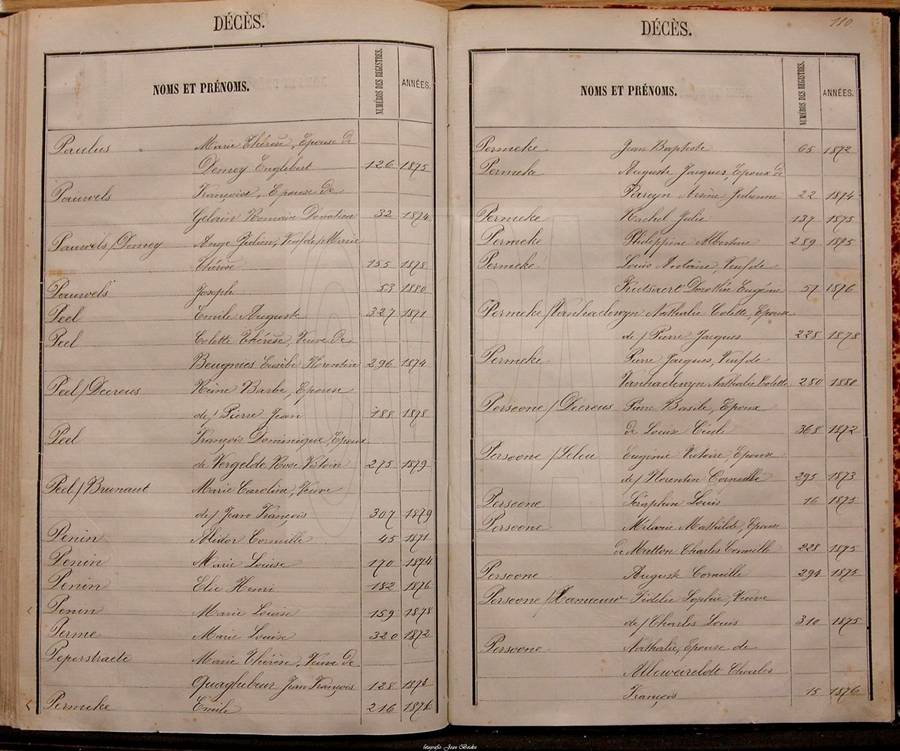 DÉCÈS.
NOMS ET PRÉNOMS. NUMÉROS DES REGISTRES. ANNÉES.
Paulus Marie Thérèse, Epouse de
Demey Englebert 126 1875
Pauwels Françoise, Epouse de
Gelain Romain Donatien 32 1874
Pauwels/Demey Ange Gédion, Veuf de Marie
Thérèse 155 1878
Pauwels Joseph 53 1880
Peel Emile Auguste 327 1871
Peel Colette Thérèse, Veuve de
Beugnies Eusèbe Florentin 296 1874
Peel/Decreus Reine Barbe, Epouse
de/ Pierre Jean 188 1878
Peel François Dominique, Epoux
de Vergelde Rose Victoire 275 1879
Peel/Brunaut Marie Caroline, Veuve
de/ Jean François 307 1879
Penin Alidor Corneille 45 1871
Penin Marie Louise 170 1874
Penin Elie Henri 182 1876
Penin Marie Louise 159 1878
Perme Marie Louise 320 1872
Peperstraete Marie Thérèse, Veuve de
Quaghebeur Jean François 128 187
Permeke Emile 216 1876
DÉCÈS. 110
NOMS ET PRÉNOMS. NUMÉROS DES REGISTRES. ANNÉES.
Permeke Jean Baptiste 65 1872
Permeke Auguste Jacques, Epoux de
Pareyn Nésime Julienne 22 1874
Permeke Rachel Julie 137 1875
Permeke Philippine Albertine 289 1875
Permeke Louis Antoine, Veuf de
Dorothée Eugénie 57 1876
Permeke/Vanhaclenzyn Nathalie Colette, Epouse
de/ Pierre Jacques 228 1878
Permeke Pierre Jacques, Veuf de
Vanhaclenzyn Nathalie Colette 280 1880
Persoone/Decreus Pierre Basile, Epoux
de Louise Cécile 368 1872
Persoone/Leleu Eugénie Victoire, Epouse
de/ Florentin Corneille 295 1873
Persoone Séraphin Louis 16 1875
Persoone Mélanie Mathilde, Epouse
de Mutton Charles Corneille 228 1875
Persoone Auguste Corneille 294 1875
Persoone/Rameeuw Fidélie Sophie, Veuve
de/ Charles Louis 310 1875
Persoone Nathalie, Epouse de
Alleweireldt Charles
François 15 1876